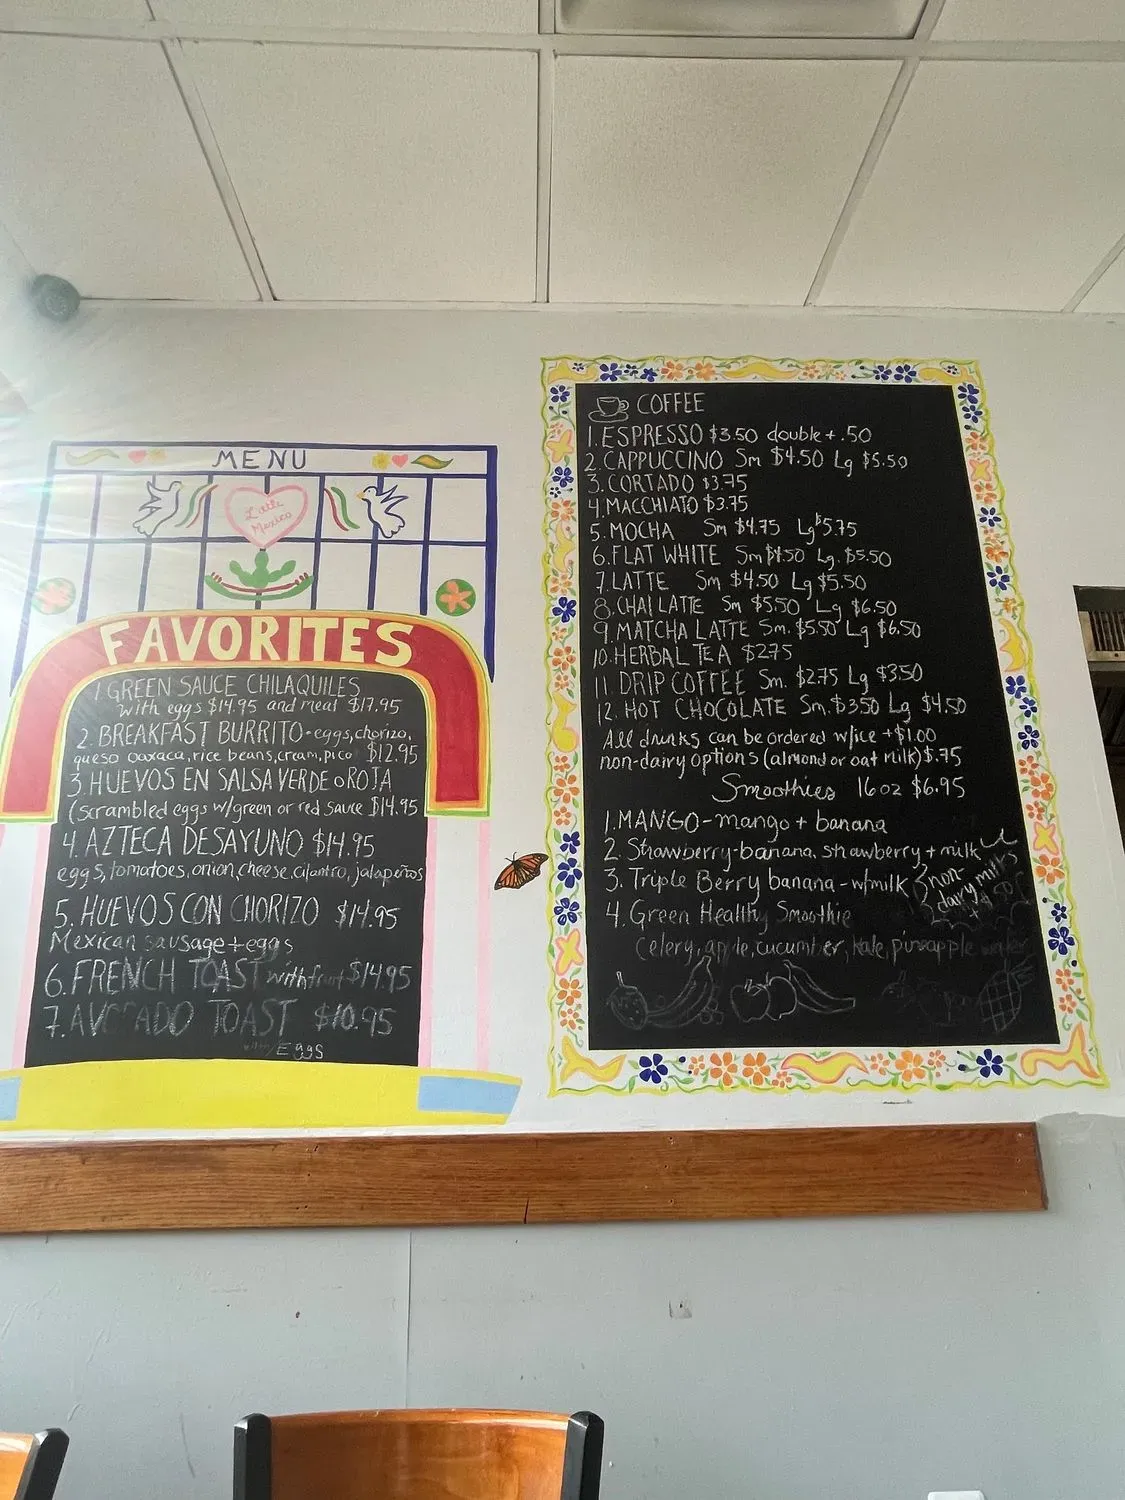 MENU
Latte
Mexico
FAVORITES
1 GREEN SAUCE CHILAQUILES
with eggs $14.95 and meat $17.95
2. BREAKFAST BURRITO - eggs, chorizo,
queso oaxaca, rice beans, cream, pico $12.95
3. HUEVOS EN SALSA VERDE o ROJA
(scrambled eggs w/green or red sauce $14.95
4. AZTECA DESAYUNO $14.95
eggs, tomatoes, onion, cheese, cilantro, jalapeños
5. HUEVOS CON CHORIZO $14.95
Mexican sausage + eggs
6. FRENCH TOAST with fruit $14.95
7. AVOCADO TOAST $10.95
with Eggs
COFFEE
1. ESPRESSO $3.50 double + .50
2. CAPPUCCINO Sm $4.50 Lg $5.50
3. CORTADO $3.75
4. MACCHIATO $3.75
5. MOCHA Sm $4.75 Lg $5.75
6. FLAT WHITE Sm $4.50 Lg. $5.50
7. LATTE Sm $4.50 Lg $5.50
8. CHAI LATTE Sm $5.50 Lg $6.50
9. MATCHA LATTE Sm. $5.50 Lg $6.50
10. HERBAL TEA $2.75
11. DRIP COFFEE Sm. $2.75 Lg $3.50
12. HOT CHOCOLATE Sm. $3.50 Lg $4.50
All drinks can be ordered w/ice + $1.00
non-dairy options (almond or oat milk) $.75
Smoothies 16 oz $6.95
1. MANGO - mango + banana
2. Strawberry-banana, strawberry + milk
3. Triple Berry banana - w/milk
non-
dairy milks
4. Green Healthy Smoothie
Celery, apple, cucumber, kale, pineapple water